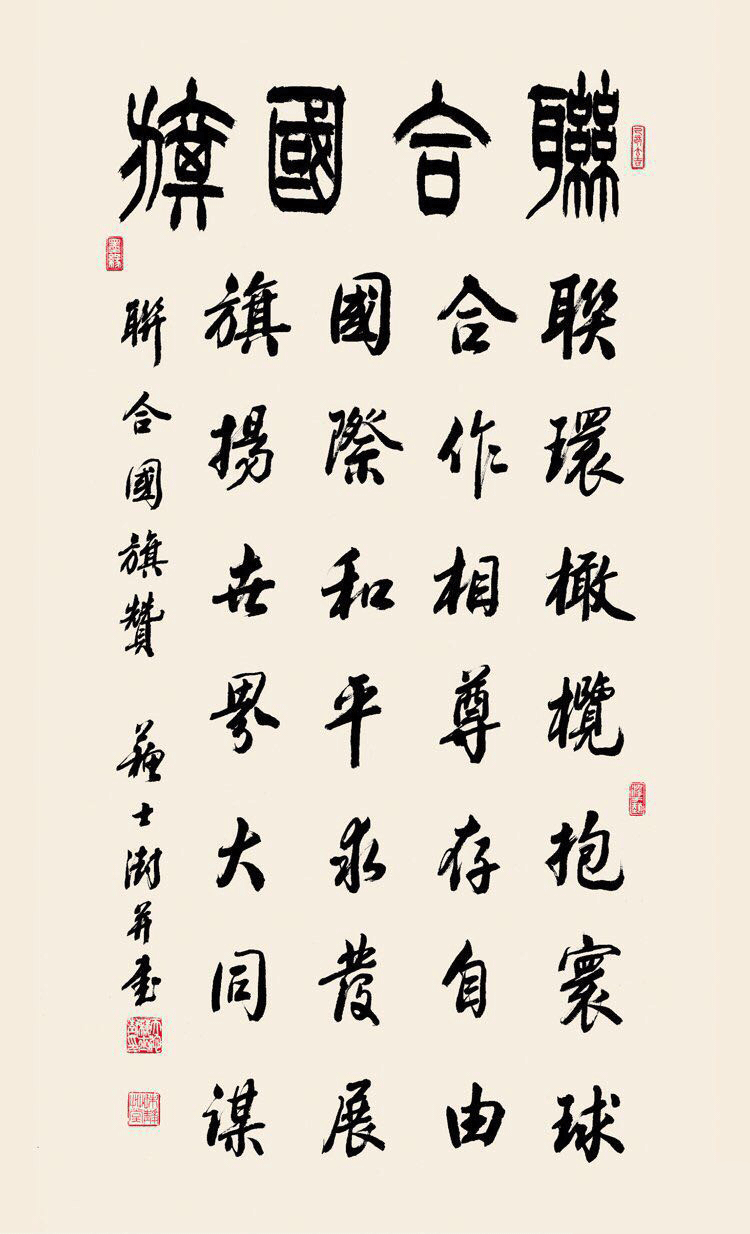 聯合國旗
聯環橄欖抱寰球
合作相尊存自由
國際和平求發展
旗揚世界大同謀
聯合國旗贊 蘇士澍并書